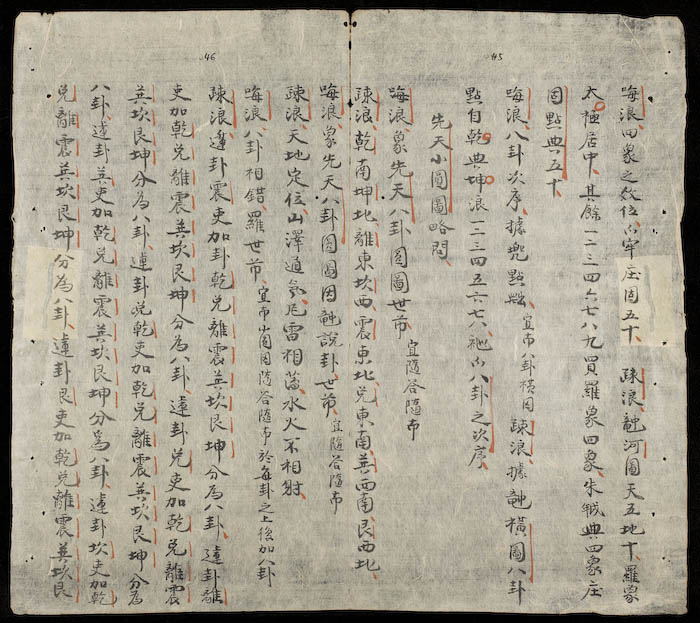 45
嗨浪四象之位庄固五十 疎浪河圖天五地十羅象
太極居中其餘一二三四六七八九買羅象四象朱典四象庄
固點典五十
嗨浪八卦次序據點 宜布八卦橫圖 疎浪據橫圖八卦
點自乾典坤浪一二三四五六七八八卦之次序
先天小圓圖略問
嗨浪象先天八卦圓圖世苪 宜隨答隨布
疎浪乾南坤北離東坎西震東北兌東南巽西南艮西北
46
嗨浪象先天八卦圓圖因說卦世苪 宜隨答隨布
疎浪天地定位山澤通氣風雷相薄水火不相射
嗨浪八卦相錯羅世苪 宜布小圓圖隨答隨布於每卦之上後加八卦
疎浪蓮卦震吏加卦乾兌離震巽坎艮坤分為八卦蓮卦離
吏加乾兌離震巽坎艮坤分為八卦蓮卦兌吏加乾兌離震
巽坎艮坤分為八卦蓮卦乾吏加乾兌離震巽坎艮坤分為
八卦蓮卦巽吏加乾兌離震巽坎艮坤分為八卦蓮卦坎吏加乾
兌離震巽坎艮坤分為八卦蓮卦艮吏加乾兌離震巽坎艮